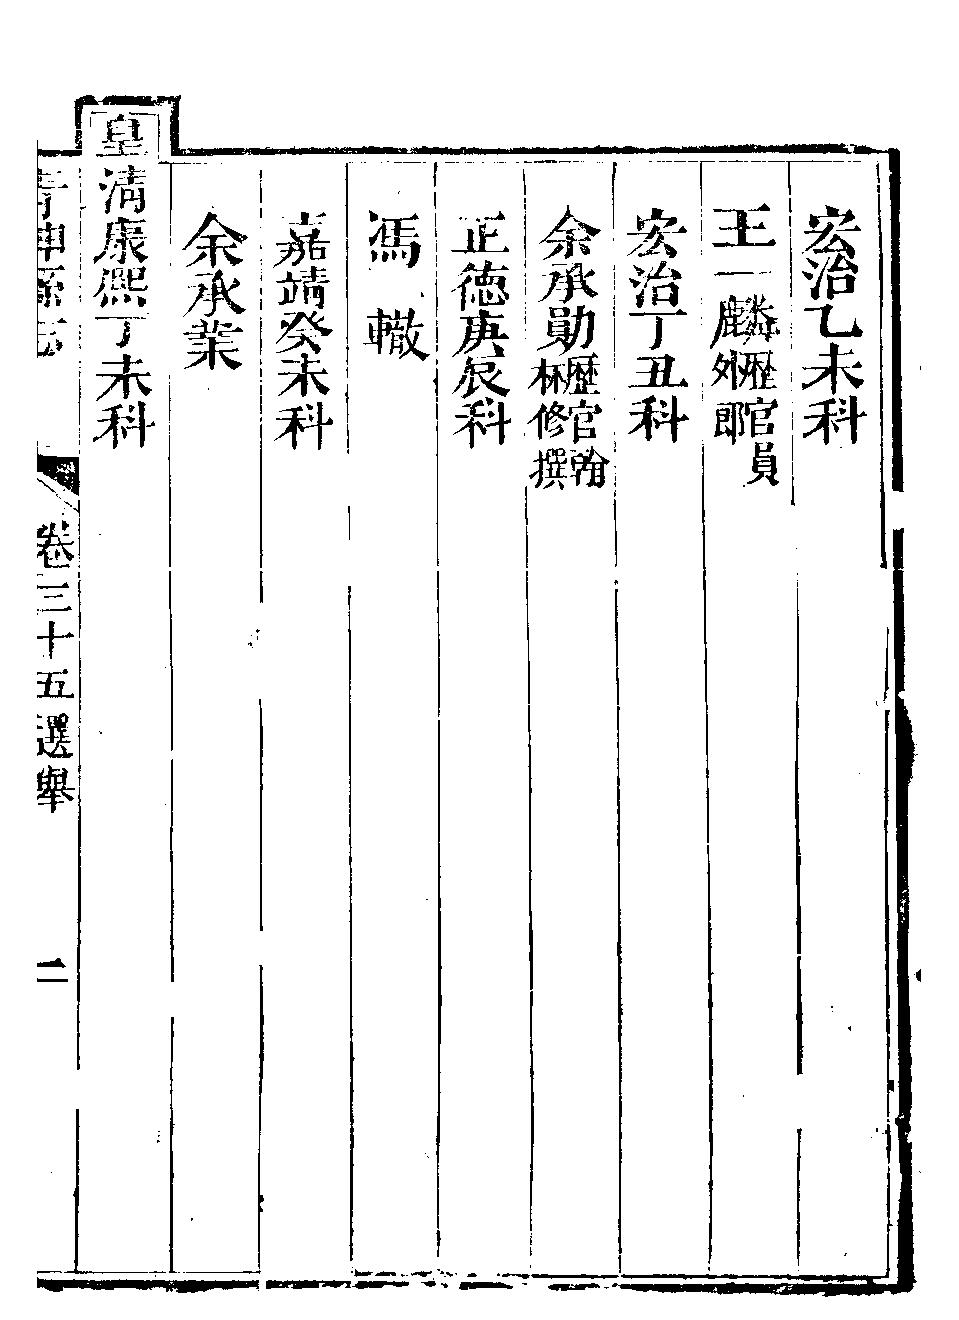 宏治乙未科
王一麟歷官員外郎
宏治丁丑科
余承勛歷官翰林修撰
正德庚辰科
馮　轍
嘉靖癸未科
余承業
皇清康熙丁未科
青神縣志　卷三十五選舉　二